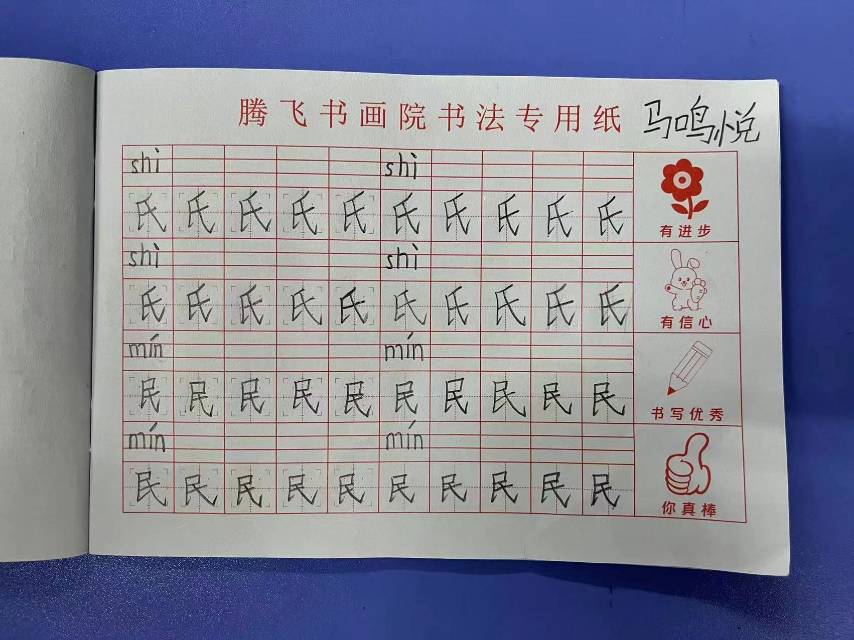 腾飞书画院书法专用纸 马鸣悦
shì shì
氏氏氏氏氏氏氏氏氏氏
有进步
shì shì
氏氏氏氏氏氏氏氏氏氏
有信心
mín mín
民民民民民民民民民民
书写优秀
mín mín
民民民民民民民民民民
你真棒